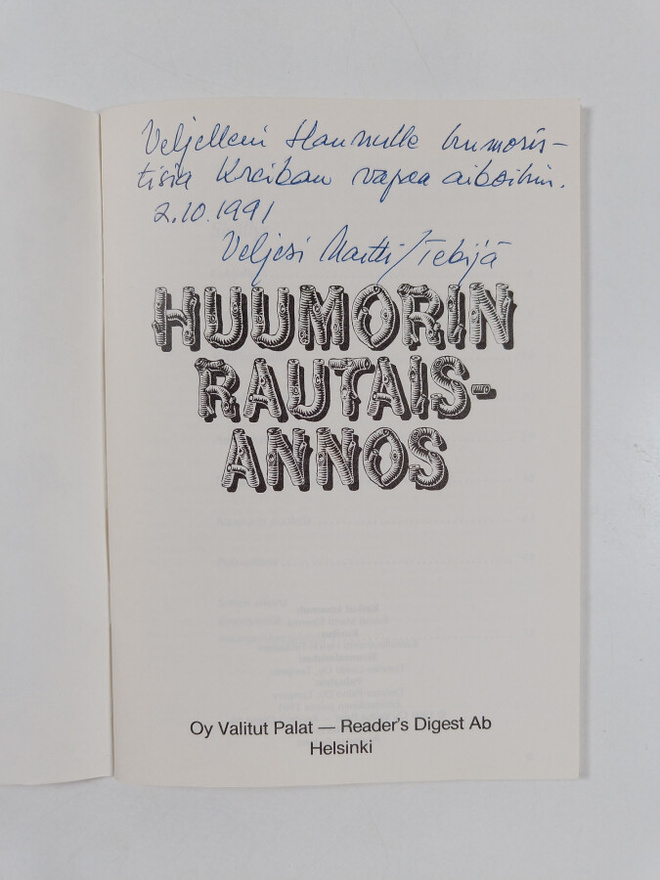 Veljelleni Hannulle humoris-
tisia vapaa aikoihin.
2.10.1991
Veljesi Martti/Tekijä
HUUMORIN
RAUTAIS-
ANNOS
Oy Valitut Palat — Reader's Digest Ab
Helsinki